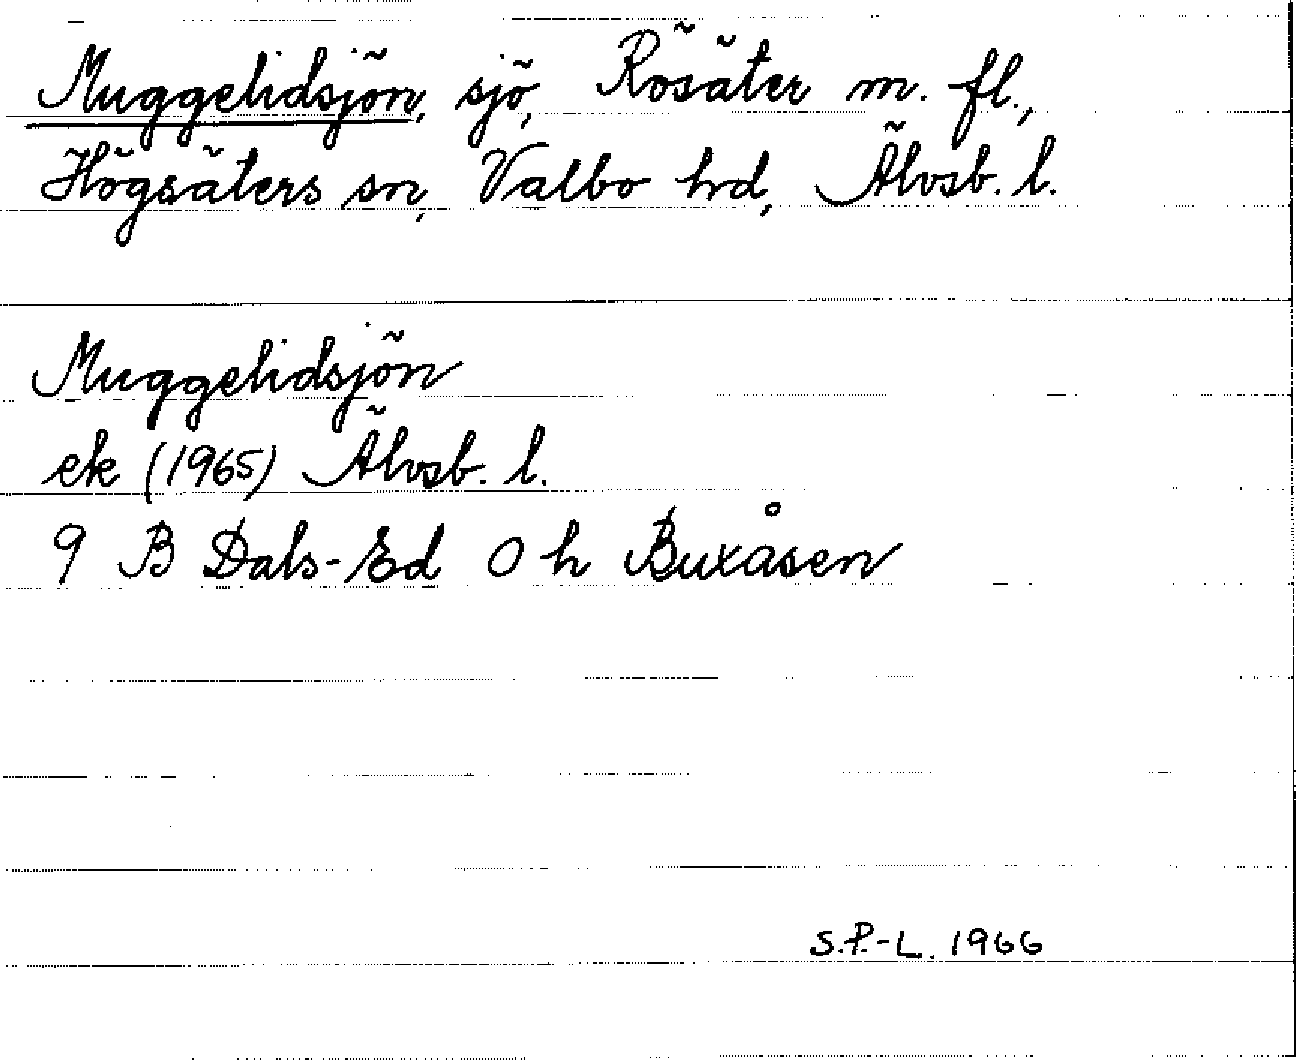 Muggelidsjön, sjö, Rösäter m. fl.,
Högsäters sn, Valbo hd, Älvsb. l.
Muggelidsjön
ek (1965) Älvsb. l.
9 B Dals-Ed 0 h Buxåsen
S.P.-L. 1966